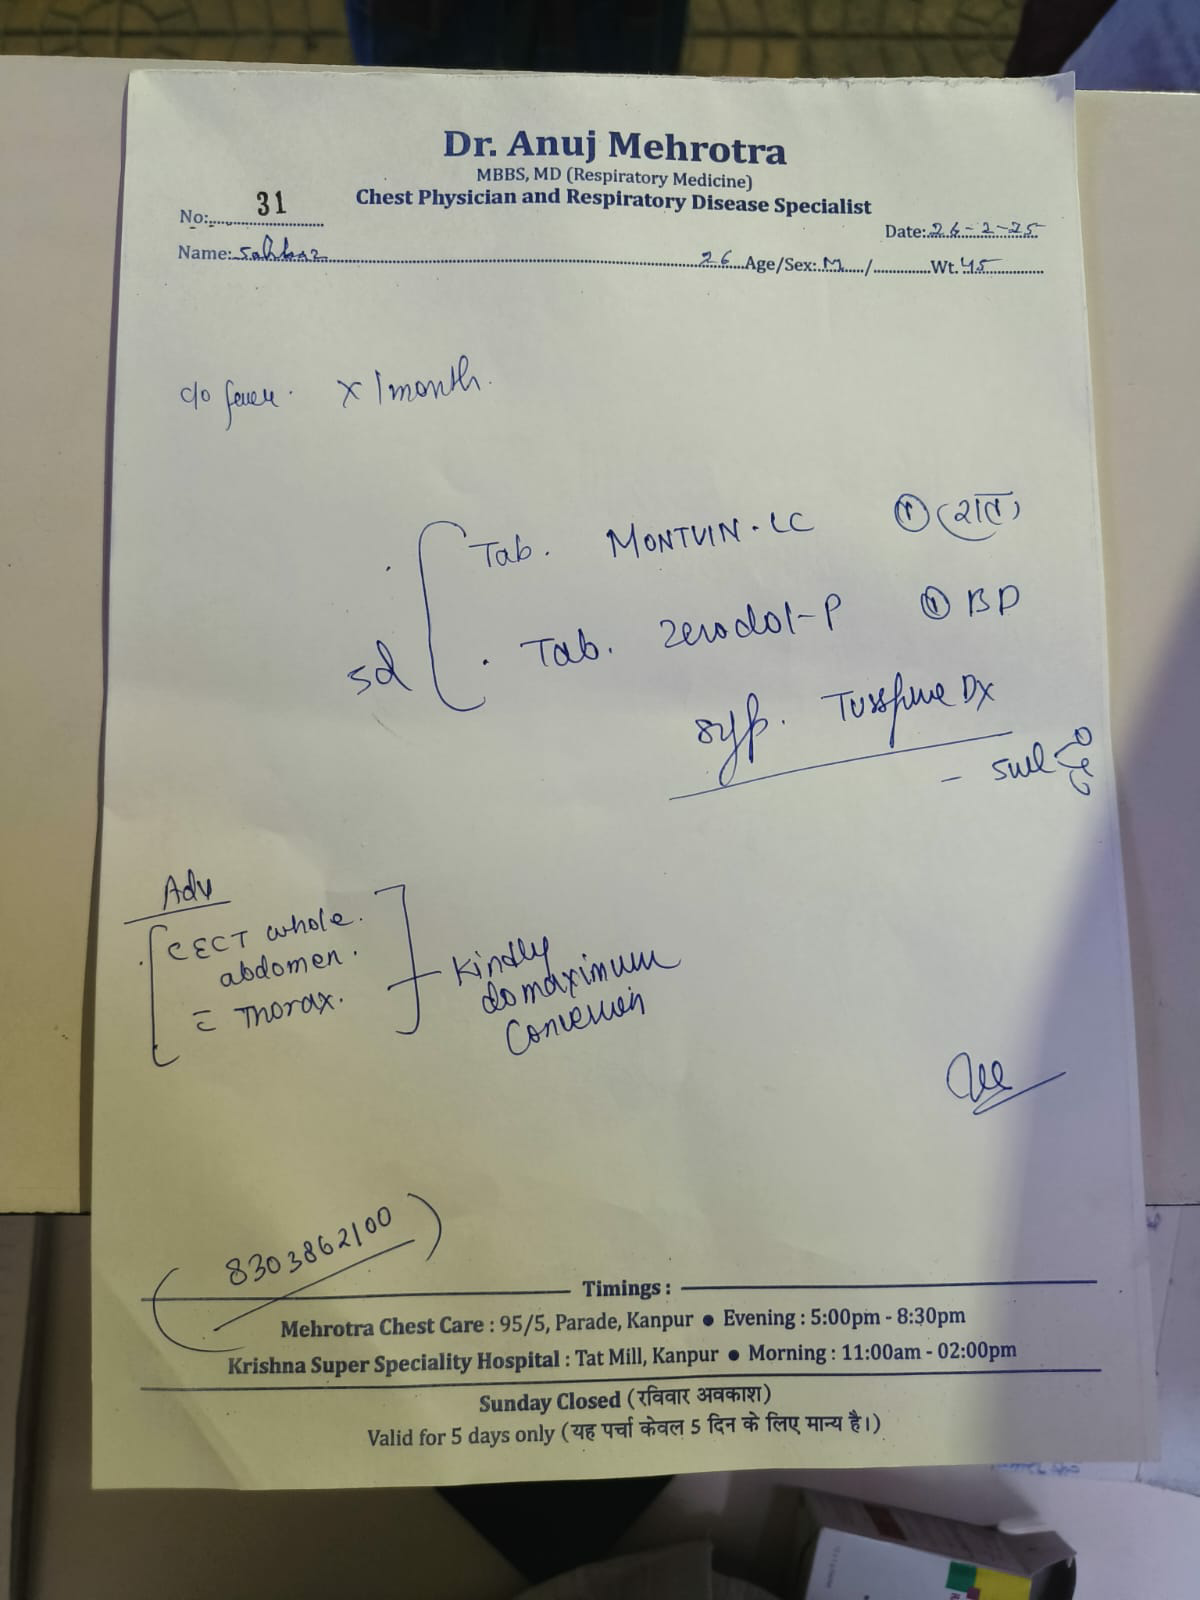 Dr. Anuj Mehrotra
MBBS, MD (Respiratory Medicine)
Chest Physician and Respiratory Disease Specialist
No: 31
Date: 26-2-25
Name: 26 Age/Sex: M / Wt. 45
c/o fever. x 1 month.
Tab. MONTVIN-LC ① (रात)
5d
Tab. Zerodol-P ① BD
syp. DX
Adv
CECT whole
abdomen.
c̄ Thorax.
Kindly
do maximum
8303862100
Timings :
Mehrotra Chest Care : 95/5, Parade, Kanpur ● Evening : 5:00pm - 8:30pm
Krishna Super Speciality Hospital : Tat Mill, Kanpur ● Morning : 11:00am - 02:00pm
Sunday Closed (रविवार अवकाश)
Valid for 5 days only (यह पर्चा केवल 5 दिन के लिए मान्य है।)